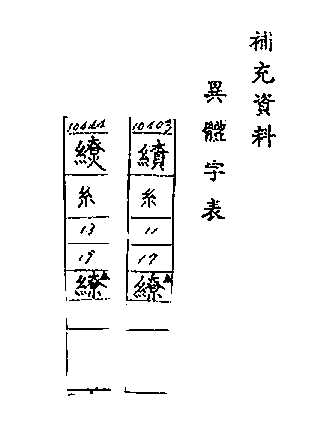 補充資料
異體字表
10403
糸
11
17
繚
糸
13
19
繚